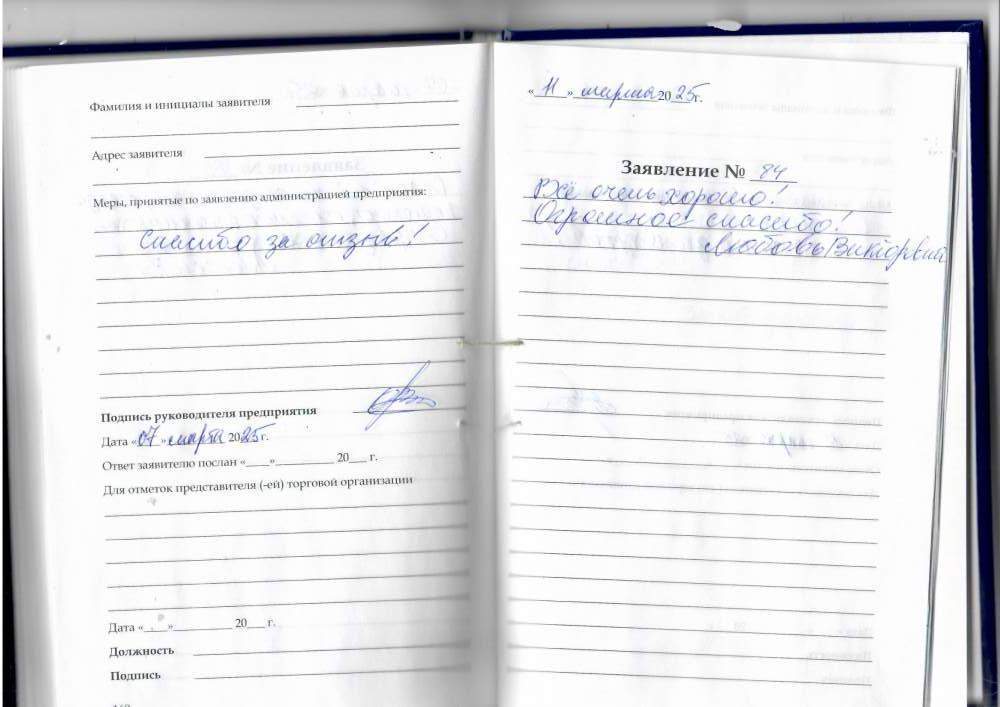 Фамилия и инициалы заявителя
Адрес заявителя
Меры, принятые по заявлению администрацией предприятия:
Спасибо за отзыв!
Подпись руководителя предприятия
Дата «07» марта 2025 г.
Ответ заявителю послан «___»_________ 20__ г.
Для отметок представителя (-ей) торговой организации
Дата «___»_________ 20__ г.
Должность
Подпись
«11» марта 2025 г.
Заявление № 84
Всё очень хорошо!
Огромное спасибо!
Любовь Викторвна